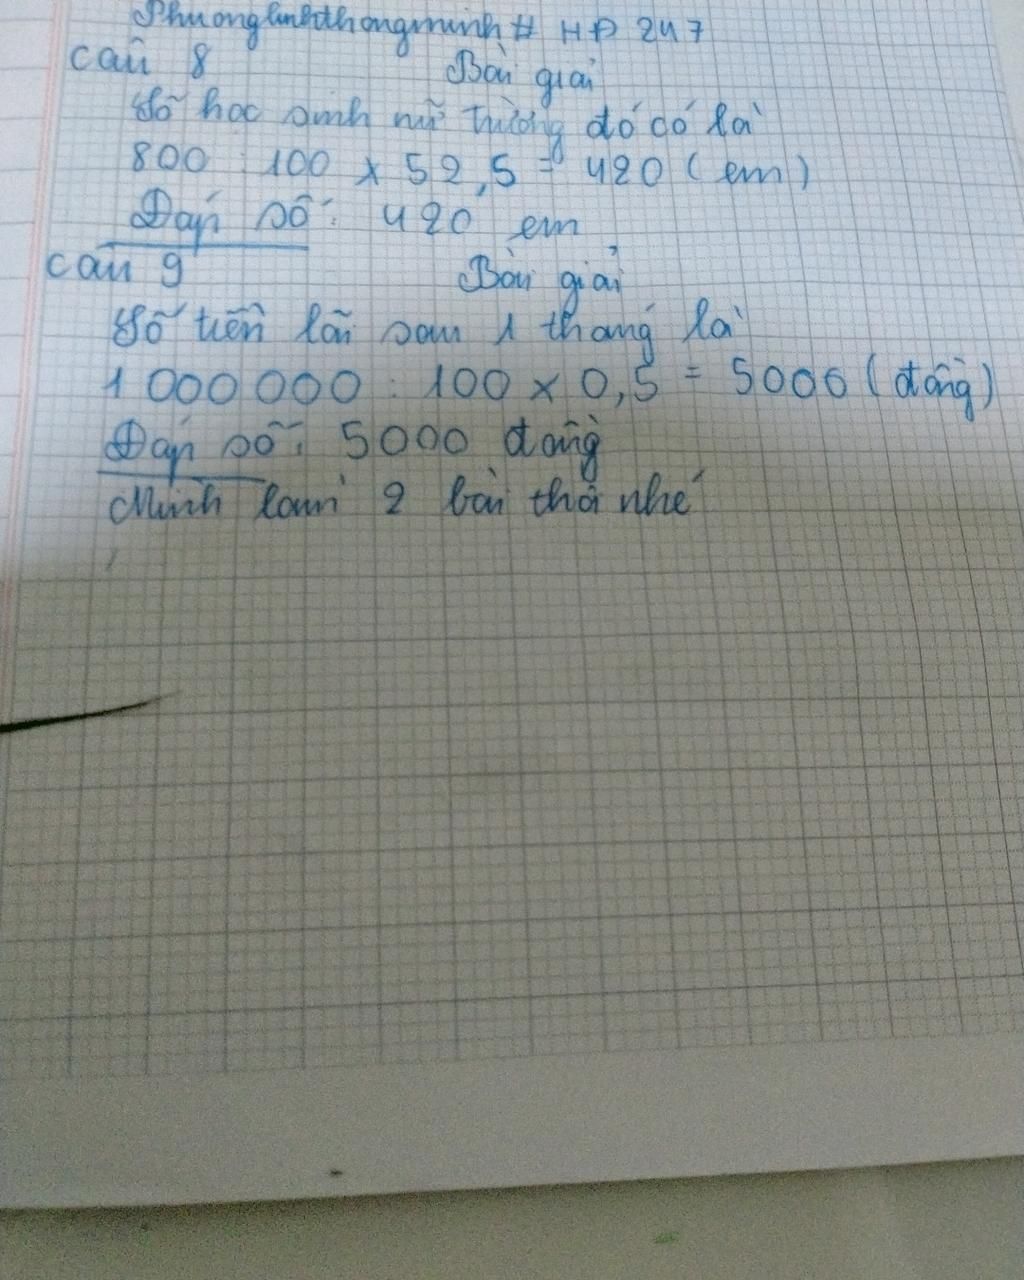 Phuonglinhthongminh # HP 247
câu 8 Bài giải
Số học sinh nữ trường đó có là
800 : 100 x 52,5 = 420 (em)
Đáp số: 420 em
câu 9 Bài giải
Số tiền lãi sau 1 tháng là
1 000 000 : 100 x 0,5 = 5000 (đồng)
Đáp số: 5000 đồng
Mình làm 2 bài thôi nhé